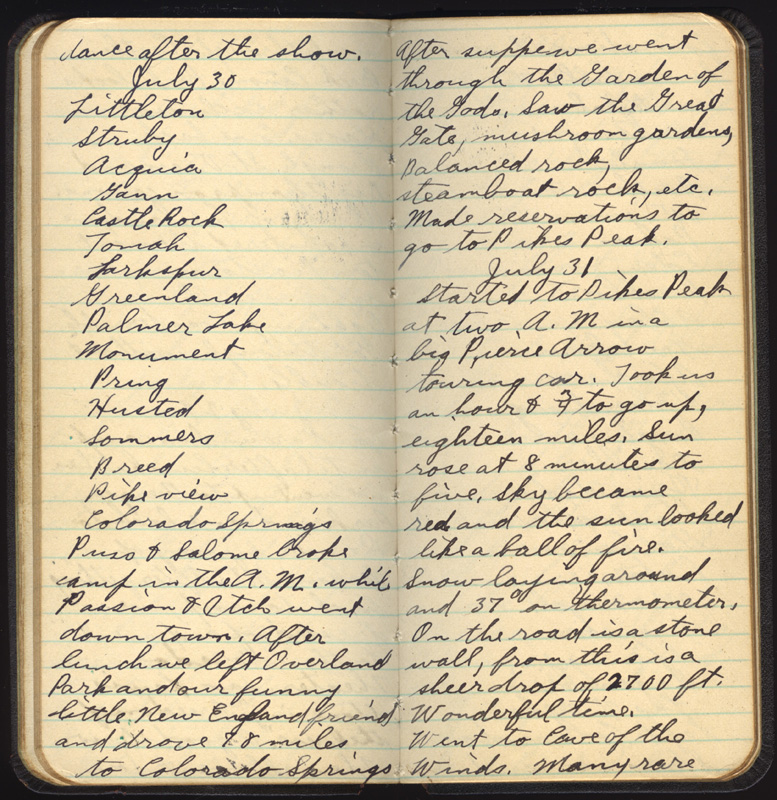 dance after the show.
July 30
Littleton
Struby
Acquia
Gann
Castle Rock
Tomah
Larkspur
Greenland
Palmer Lake
Monument
Pring
Husted
Sommers
Breed
Pike view
Colorado Springs
Puso & Salome broke
camp in the A. M. while
Passion & Itch went
down town. After
lunch we left Overland
Park and our funny
little New England friend
and drove 78 miles
to Colorado Springs
After suppe we went
through the Garden of
the Gods. Saw the Great
Gate, mushroon gardens,
Balanced rock,
steamboat rock, etc.
Made reservations to
go to Pikes Peak.
July 31
Started to Pikes Peak
at two A. M in a
big Pierce Arrow
touring car. Took us
an hour & 3/4 to go up,
eighteen miles. Sun
rose at 8 minutes to
five. Sky became
red and the sun looked
like a ball of fire.
Snow laying around
and 37° on thermometer.
On the road is a stone
wall, from this is a
sheer drop of 2700 ft.
Wonderful time.
Went to Cave of the
Winds. Many rare